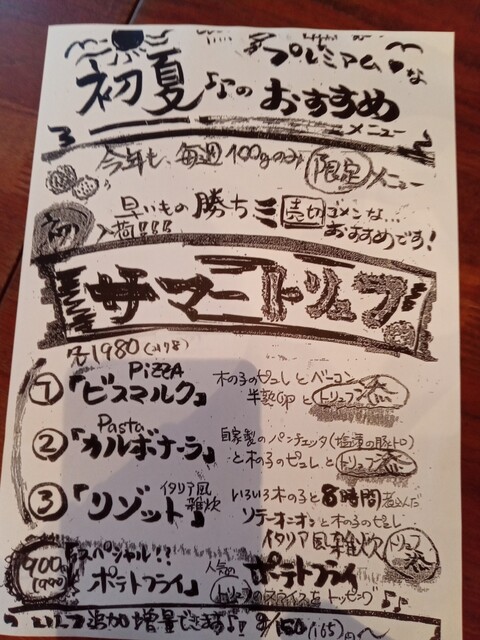 プレミアム♥な
初夏♪♪の おすすめ
メニュー
今年も、毎週100gのみ 限定 メニュー
早いもの勝ち 売切 ゴメンな…
初入荷!!! おすすめです!
サマートリュフ
各1980(2178)
① PIZZA 「ビスマルク」 木の子のピュレとベーコン
半熟卵とトリュフ添
② Pasta 「カルボナーラ」 自家製のパンチェッタ(塩漬の豚トロ)
と木の子のピュレとトリュフ添
③ 「リゾット」 イタリア風雑炊 いろいろ木の子と8時間煮込んだ
ソテーオニオンと木の子のピュレ
イタリア風雑炊 トリュフ添
900(990) スペシャル!! ポテトフライ 人気の ポテトフライ
トリュフのスライスをトッピング♪♪
追加増量できます♪!! 150(165)